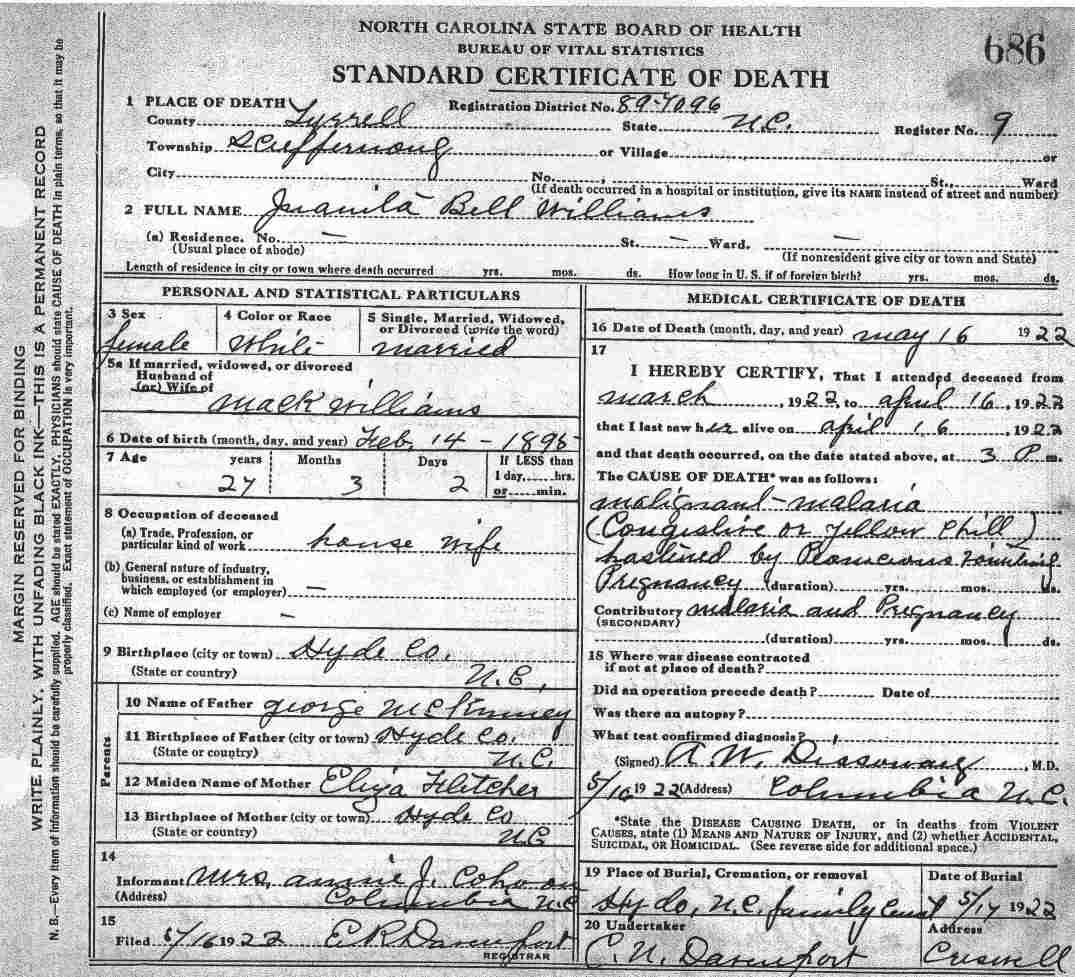 NORTH CAROLINA STATE BOARD OF HEALTH
BUREAU OF VITAL STATISTICS
686
STANDARD CERTIFICATE OF DEATH
1 PLACE OF DEATH Registration District No. 89-7096
County Tyrrell State N.C. Register No. 9
Township Scuppernong or Village or
City No. , St., Ward
(If death occurred in a hospital or institution, give its NAME instead of street and number)
2 FULL NAME Juanita Bell Williams
(a) Residence. No. — St. — Ward. —
(Usual place of abode) (If nonresident give city or town and State)
Length of residence in city or town where death occurred yrs. mos. ds. How long in U. S. if of foreign birth? yrs. mos. ds.
PERSONAL AND STATISTICAL PARTICULARS
3 Sex 4 Color or Race 5 Single, Married, Widowed,
or Divorced (write the word)
female White married
5a If married, widowed, or divorced
Husband of
(or) Wife of
Mack Williams
6 Date of birth (month, day, and year) Feb, 14 - 1895
7 Age years Months Days If LESS than
1 day, hrs.
27 3 2 or min.
8 Occupation of deceased
(a) Trade, Profession, or
particular kind of work house wife
(b) General nature of industry,
business, or establishment in
which employed (or employer) —
(c) Name of employer —
9 Birthplace (city or town) Hyde Co.
(State or country) N.C,
Parents
10 Name of Father George McKinney
11 Birthplace of Father (city or town) Hyde Co.
(State or country) N.C.
12 Maiden Name of Mother Eliza Fletcher
13 Birthplace of Mother (city or town) Hyde Co
(State or country) N.C
14
Informant Mrs, Annie J. Cohoon
(Address) Columbia N.C
15
Filed 5/16 1922 E R Davenport
REGISTRAR
MEDICAL CERTIFICATE OF DEATH
16 Date of Death (month, day, and year) May 16 1922
17
I HEREBY CERTIFY, That I attended deceased from
March , 1922, to April 16, 1922
that I last saw her alive on April 16 , 1922
and that death occurred, on the date stated above, at 3 P m.
The CAUSE OF DEATH* was as follows:
malignant-malaria
(Congestive or yellow chill)
hastined by
Pregnancy (duration) yrs. mos. ds.
Contributory malaria and Pregnancy
(SECONDARY)
(duration) yrs. mos. ds.
18 Where was disease contracted
if not at place of death?
Did an operation precede death? Date of
Was there an autopsy?
What test confirmed diagnosis?
(Signed) A. W. , M.D.
5/16 1922 (Address) Columbia N.C.
*State the DISEASE CAUSING DEATH, or in deaths from VIOLENT
CAUSES, state (1) MEANS AND NATURE OF INJURY, and (2) whether ACCIDENTAL,
SUICIDAL, OR HOMICIDAL. (See reverse side for additional space.)
19 Place of Burial, Cremation, or removal Date of Burial
Hyde, N.C. family 5/17 1922
20 Undertaker Address
C. N. Davenport Creswell
MARGIN RESERVED FOR BINDING
WRITE PLAINLY, WITH UNFADING BLACK INK—THIS IS A PERMANENT RECORD
N. B. Every item of information should be carefully supplied. AGE should be stated EXACTLY. PHYSICIANS should state CAUSE OF DEATH in plain terms, so that it may be
properly classified. Exact statement of OCCUPATION is very important.